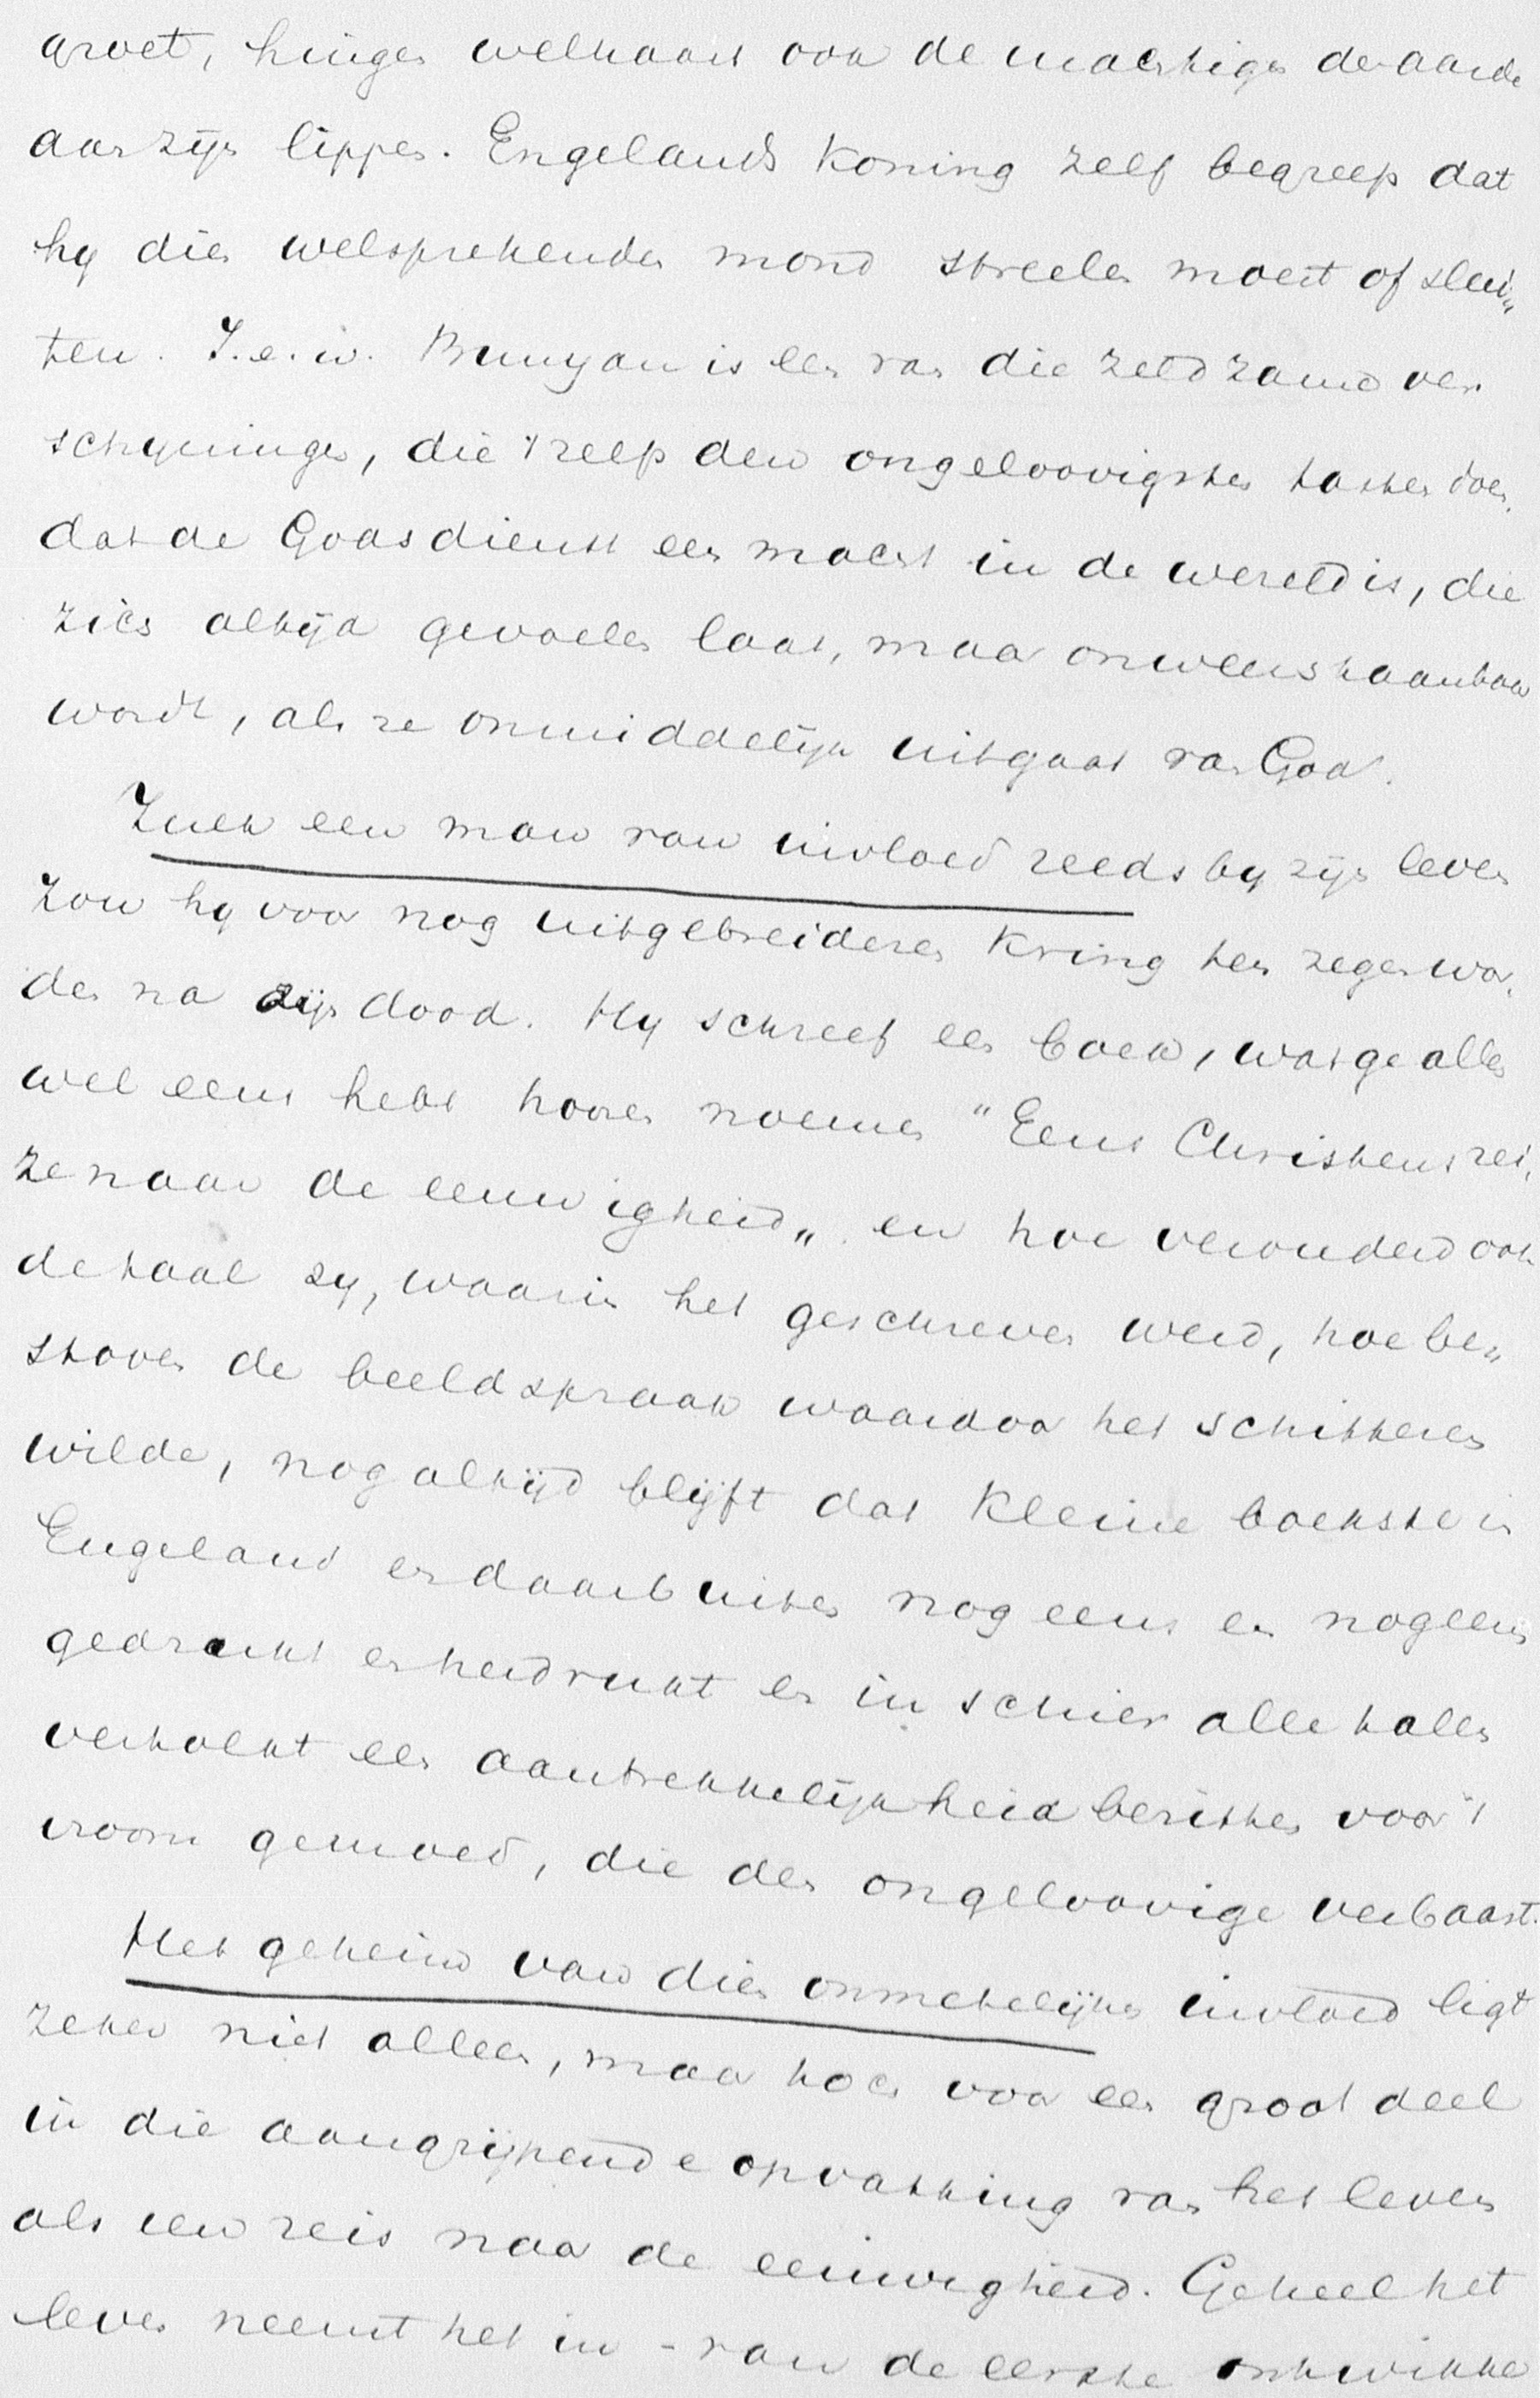 groet, hingen weldra ook de machtigen der aarde
aan zijn lippen. Engelands Koning zelf begreep dat
hy dien welsprekenden mond streelen moest of slui„
ten. I.e.w. Bunyan is een van die zeldzame ver„
schyningen, die zelf den ongeloovigsten tasten doen,
dat de Godsdienst een macht in de wereld is, die
zich altijd gevoelen laat, maar onweerstaanbaar
wordt, als ze onmiddelijk uitgaat van God.
Zulk een man van invloed reeds by zijn leven
zou hy voor nog uitgebreideren Kring ten zegen wor„
den na zijn dood. Hy schreef een boek, wat ge allen
wel eens hebt hooren noemen "Eens Christens rei„
ze naar de eeuwigheid„ en hoe verouderd ook
de taal zy, waarin het geschreven werd, hoe be„
stoven de beeldspraak waardoor het schitteren
wilde, nog altijd blijft dat Kleine boekske in
Engeland en daarbuiten nog eens en nogeens
gedrukt en herdrukt en in schier alle talen
vertolkt een aantrekkelijkheid bezitten voor 't
vroom gemoed, die den ongeloovige verbaast.
Het geheim van dien onmetelijken invloed ligt
zeker niet alleen, maar toch voor een groot deel
in die aangrijpende opvatting van het leven
als een reis naar de eeuwigheid. Geheel het
leven neemt het in - van de eerste ontwikke